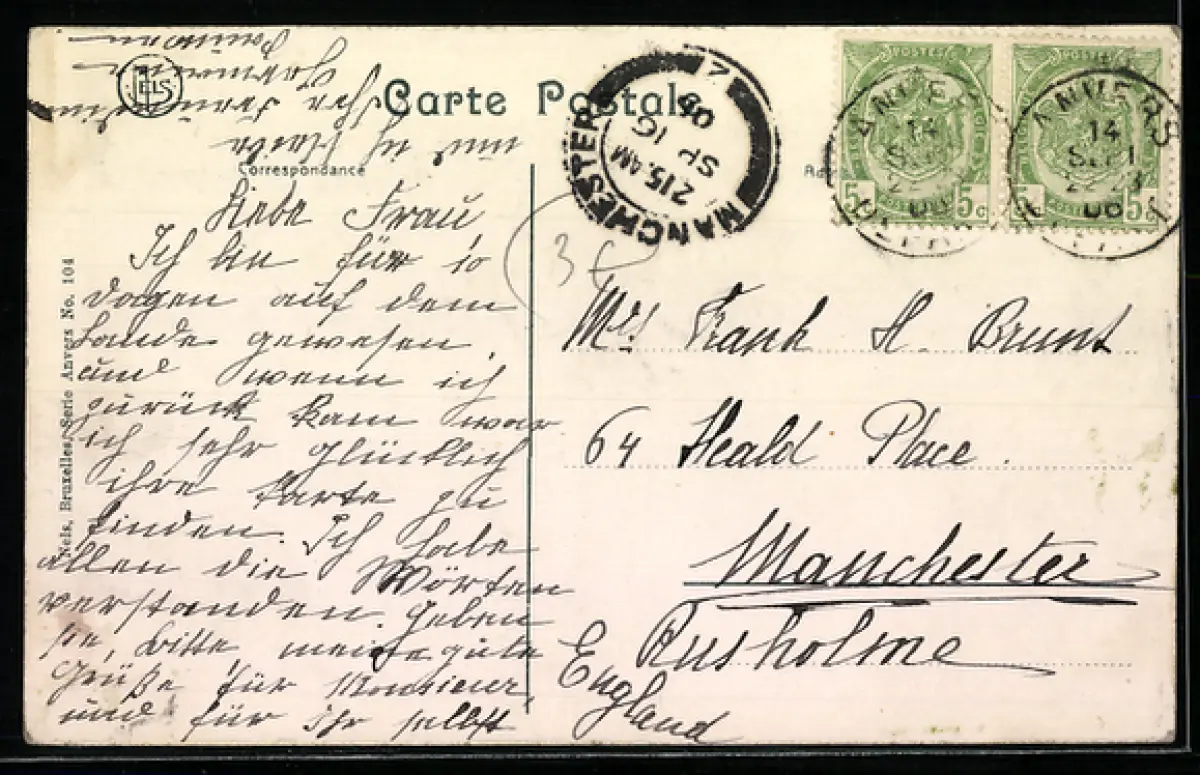 NELS
Carte Postale
Correspondance
Nels, Bruxelles, Serie Anvers No. 104
Liebe Frau
Ich bin für 10
Dagen auf dem
Lande gewesen,
und wenn ich
zurück kam war
ich sehr glücklich
ihre karte zu
finden. Ich habe
allen die Wörten
verstanden. Geben
sie, bitte meine gute
Grüße für Monsieur,
und für Ihr selbst
und ich
Ihr
MANCHESTER
2.15 AM
SP 16
06
2
POSTES
5c 5c
ANVERS
14
SEPT
06
POSTES
5
ANVERS
14
SEPT
06
3
Mrs Frank H. Brunt
64 Heald Place.
Manchester
Rusholme
England